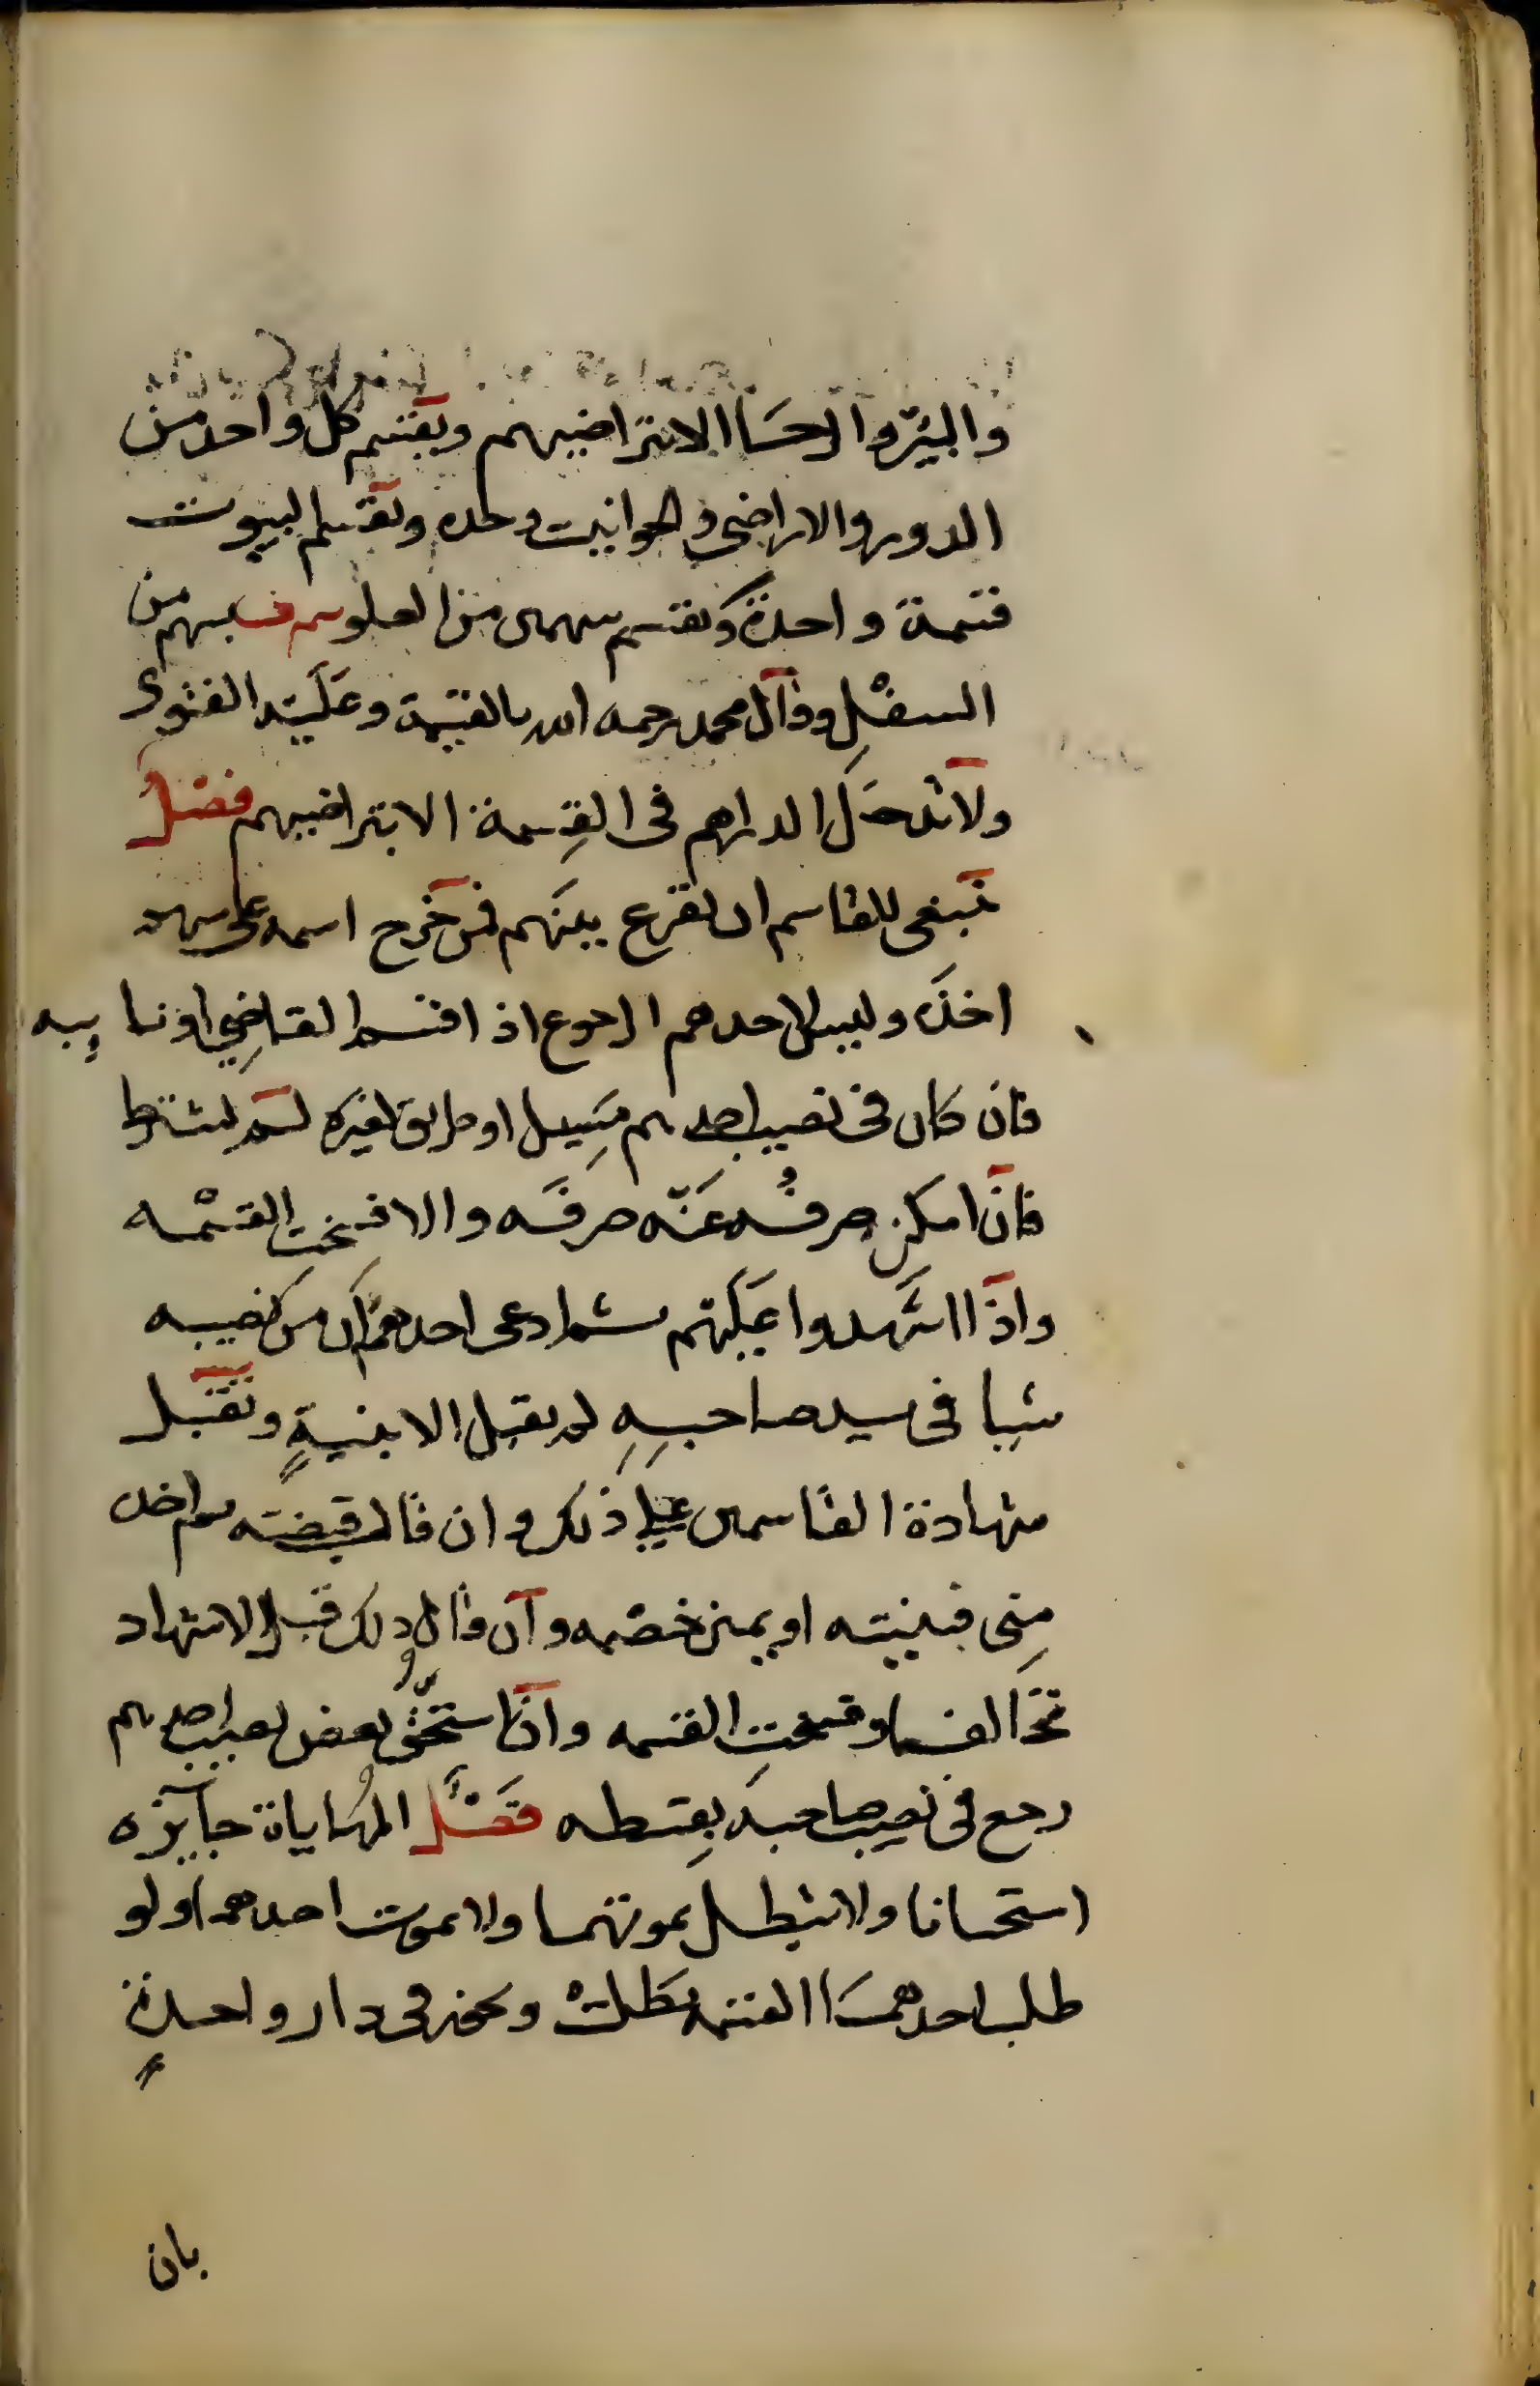 والبئر والرحا الا بتراضيهم ويقسم كل واحد من
الدور والاراضي والحوانيت وحده وتقسم البيوت
قسمة واحدة ويقسم سهمين من العلو بسهم من
السفل وقال محمد رحمه الله بالقيمة وعليه الفتوى
ولا تدخل الدراهم في القسمة الا بتراضيهم فصل
ينبغي للقاسم ان يقرع بينهم فمن خرج اسمه على سهم
اخذه وليس لاحدهم الرجوع اذا قسم القاضي او نايبه
فان كان في نصيب احدهم مسيل او طريق لغيره لم يشترط
فان امكن صرفه عنه صرفه والا فسخت القسمه
واذا اشهدوا عليهم ثم ادعى احدهم ان من نصيبه
شيا في يد صاحبه لم يقبل الا ببينة وتقبل
شهادة القاسمين على ذلك وان قال قبضته ثم اخذه
مني فبينته او يمين خصمه وان قال ذلك قبل الاشهاد
تحالفا وفسخت القسمه وان استحق بعض نصيب احدهم
رجع في نصيب صاحبه بقسطه فصل المهاياة جايزه
استحسانا ولا تبطل بموتهما ولا بموت احدهما ولو
طلب احدهما القسمه بطلت ويجوز في دار واحدة
بان